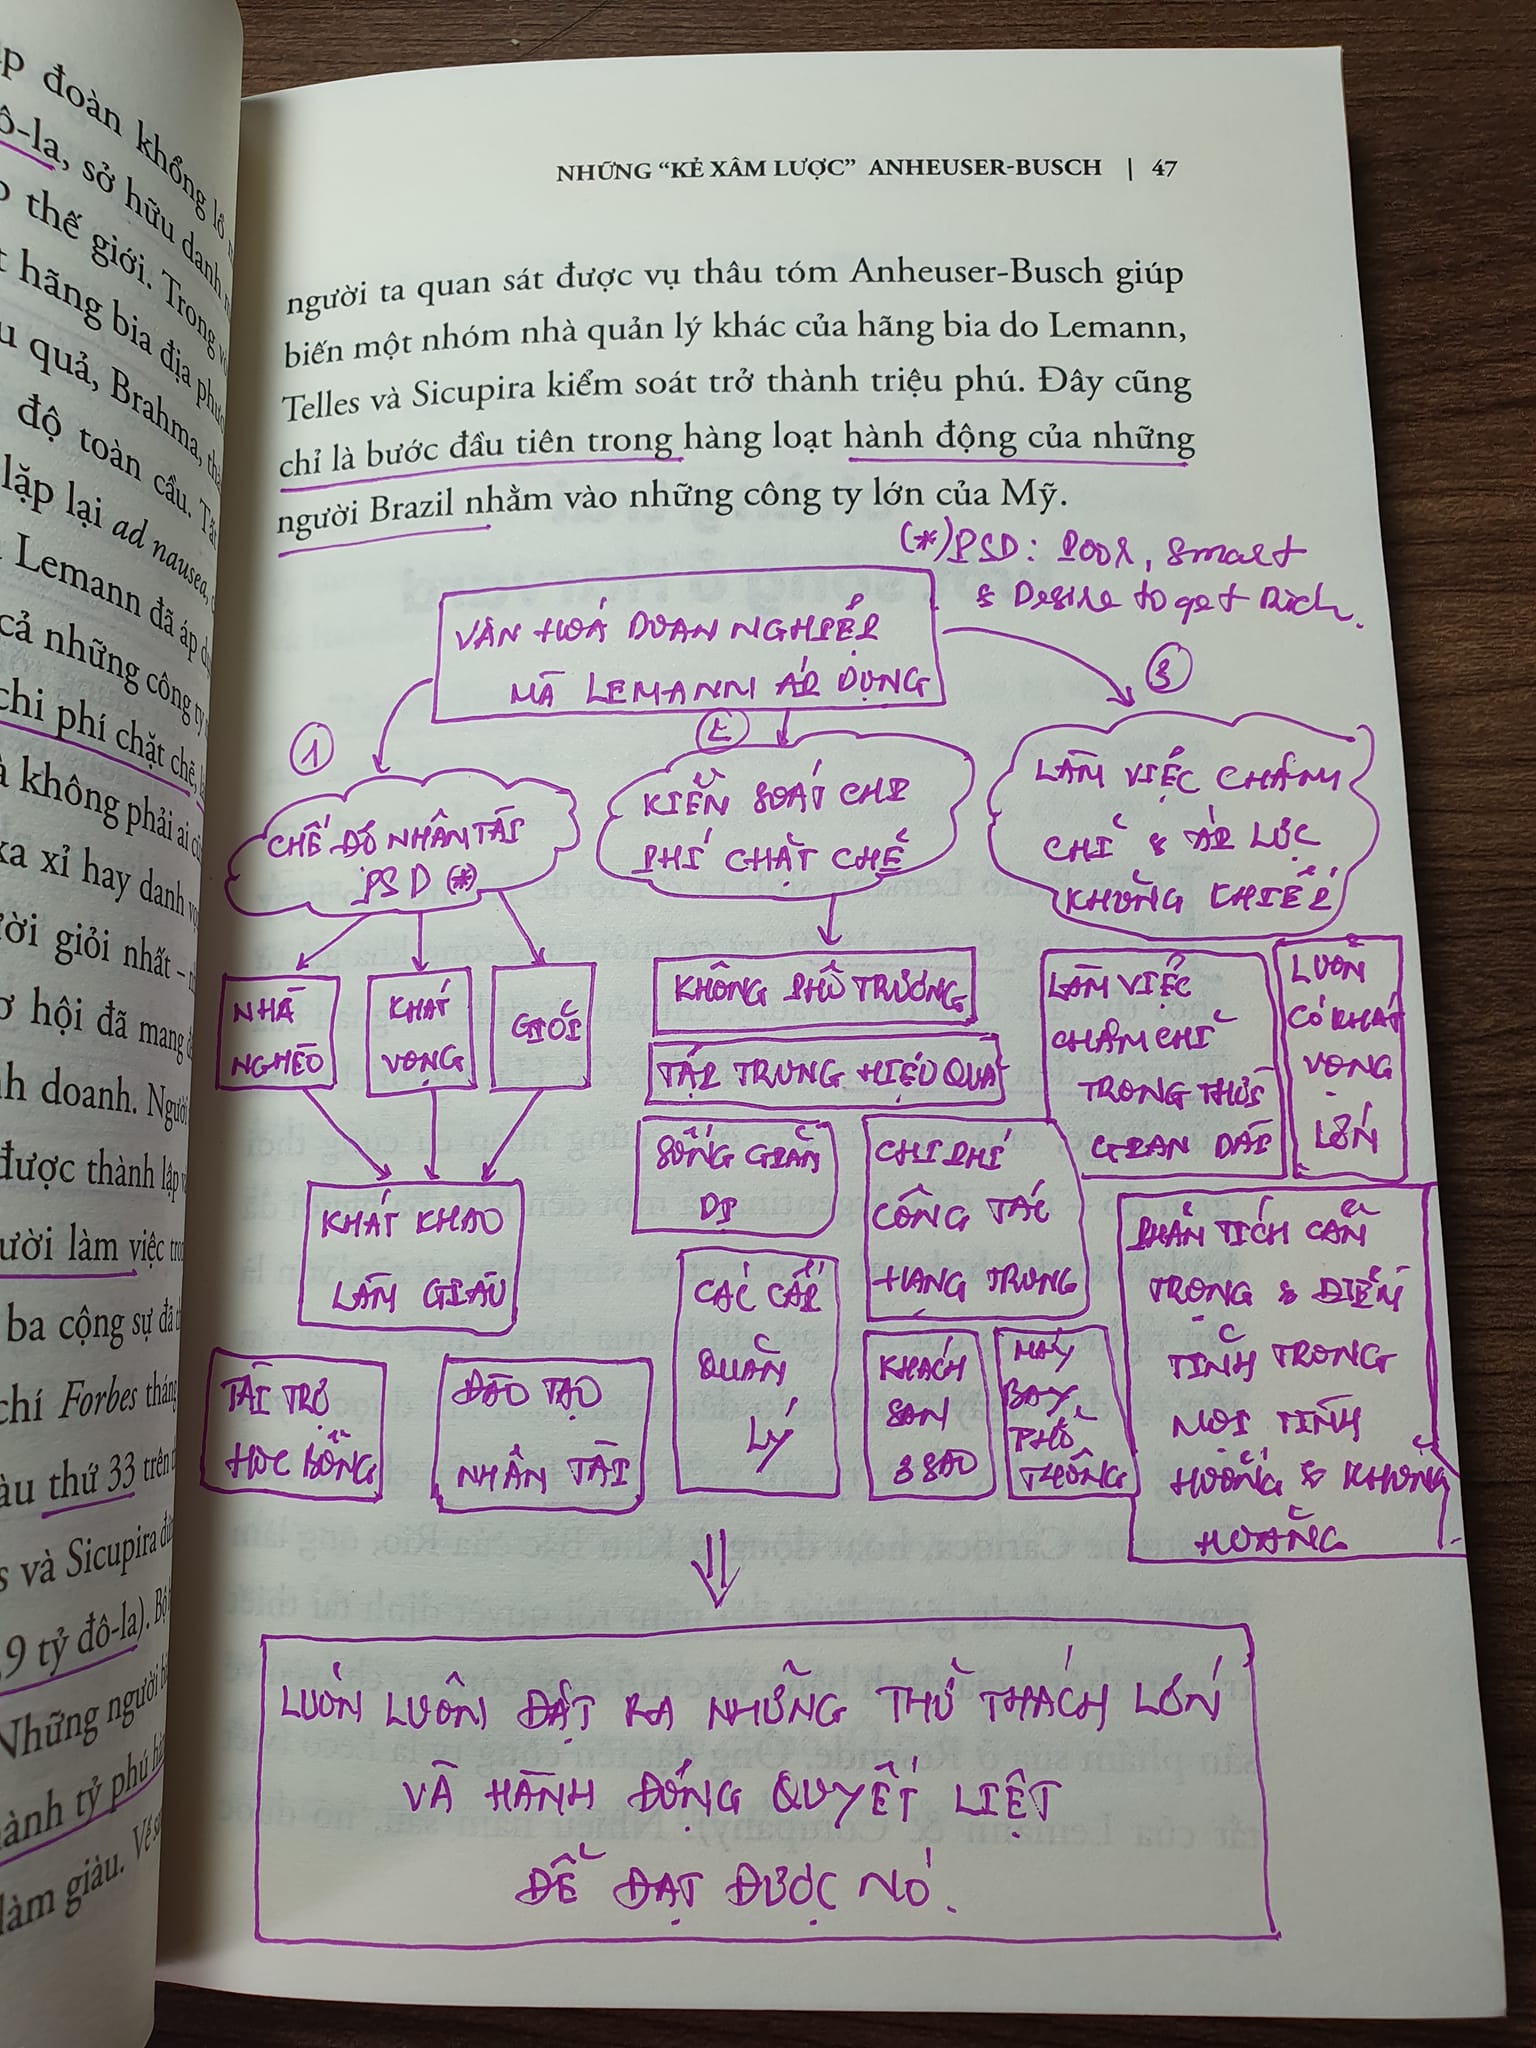 NHỮNG “KẺ XÂM LƯỢC” ANHEUSER-BUSCH | 47
người ta quan sát được vụ thâu tóm Anheuser-Busch giúp
biến một nhóm nhà quản lý khác của hãng bia do Lemann,
Telles và Sicupira kiểm soát trở thành triệu phú. Đây cũng
chỉ là bước đầu tiên trong hàng loạt hành động của những
người Brazil nhằm vào những công ty lớn của Mỹ.
(*) PSD: Poor, Smart
& Desire to get Rich.
VĂN HOÁ DOANH NGHIỆP
MÀ LEMANN ÁP DỤNG
1
CHẾ ĐỘ NHÂN TÀI
PSD (*)
NHÀ
NGHÈO
KHÁT
VỌNG
GIỎI
KHÁT KHAO
LÀM GIÀU
TÀI TRỢ
HỌC BỔNG
ĐÀO TẠO
NHÂN TÀI
2
KIỂM SOÁT CHI
PHÍ CHẶT CHẼ
KHÔNG PHÔ TRƯƠNG
TẬP TRUNG HIỆU QUẢ
SỐNG GIẢN
DỊ
CÁC CẤP
QUẢN
LÝ
CHI PHÍ
CÔNG TÁC
HẠNG TRUNG
KHÁCH
SẠN
3 SAO
MÁY
BAY
PHỔ
THÔNG
3
LÀM VIỆC CHĂM
CHỈ & ÁP LỰC
KHỦNG KHIẾP
LÀM VIỆC
CHĂM CHỈ
TRONG THỜI
GIAN DÀI
LUÔN
CÓ KHÁT
VỌNG
LỚN
PHÂN TÍCH CẨN
TRỌNG & ĐIỀM
TĨNH TRONG
MỌI TÌNH
HUỐNG & KHỦNG
HOẢNG
LUÔN LUÔN ĐẶT RA NHỮNG THỬ THÁCH LỚN
VÀ HÀNH ĐỘNG QUYẾT LIỆT
ĐỂ ĐẠT ĐƯỢC NÓ.
p đoàn khổng lồ
ô-la, sở hữu danh
thế giới. Trong
hãng bia địa
quả, Brahma,
độ toàn cầu.
lặp lại ad nausea,
Lemann đã áp
cả những công ty
chi phí chặt chẽ,
không phải ai
xa xỉ hay danh
giỏi nhất –
hội đã mang
doanh. Người
được thành lập
làm việc
ba cộng sự đã
chí Forbes tháng
thứ 33 trên
và Sicupira
9 tỷ đô-la). Bộ
Những người
tỷ phú
làm giàu. Về